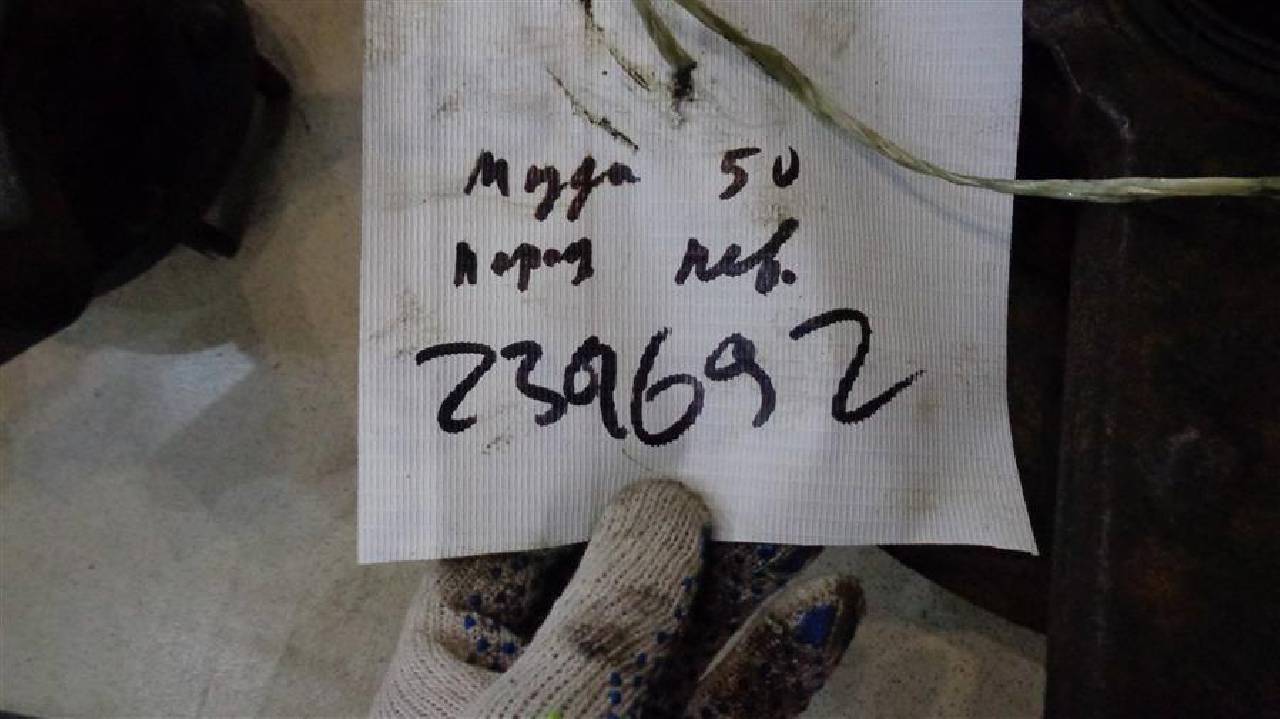 Мазда 50
перед лев.
239692